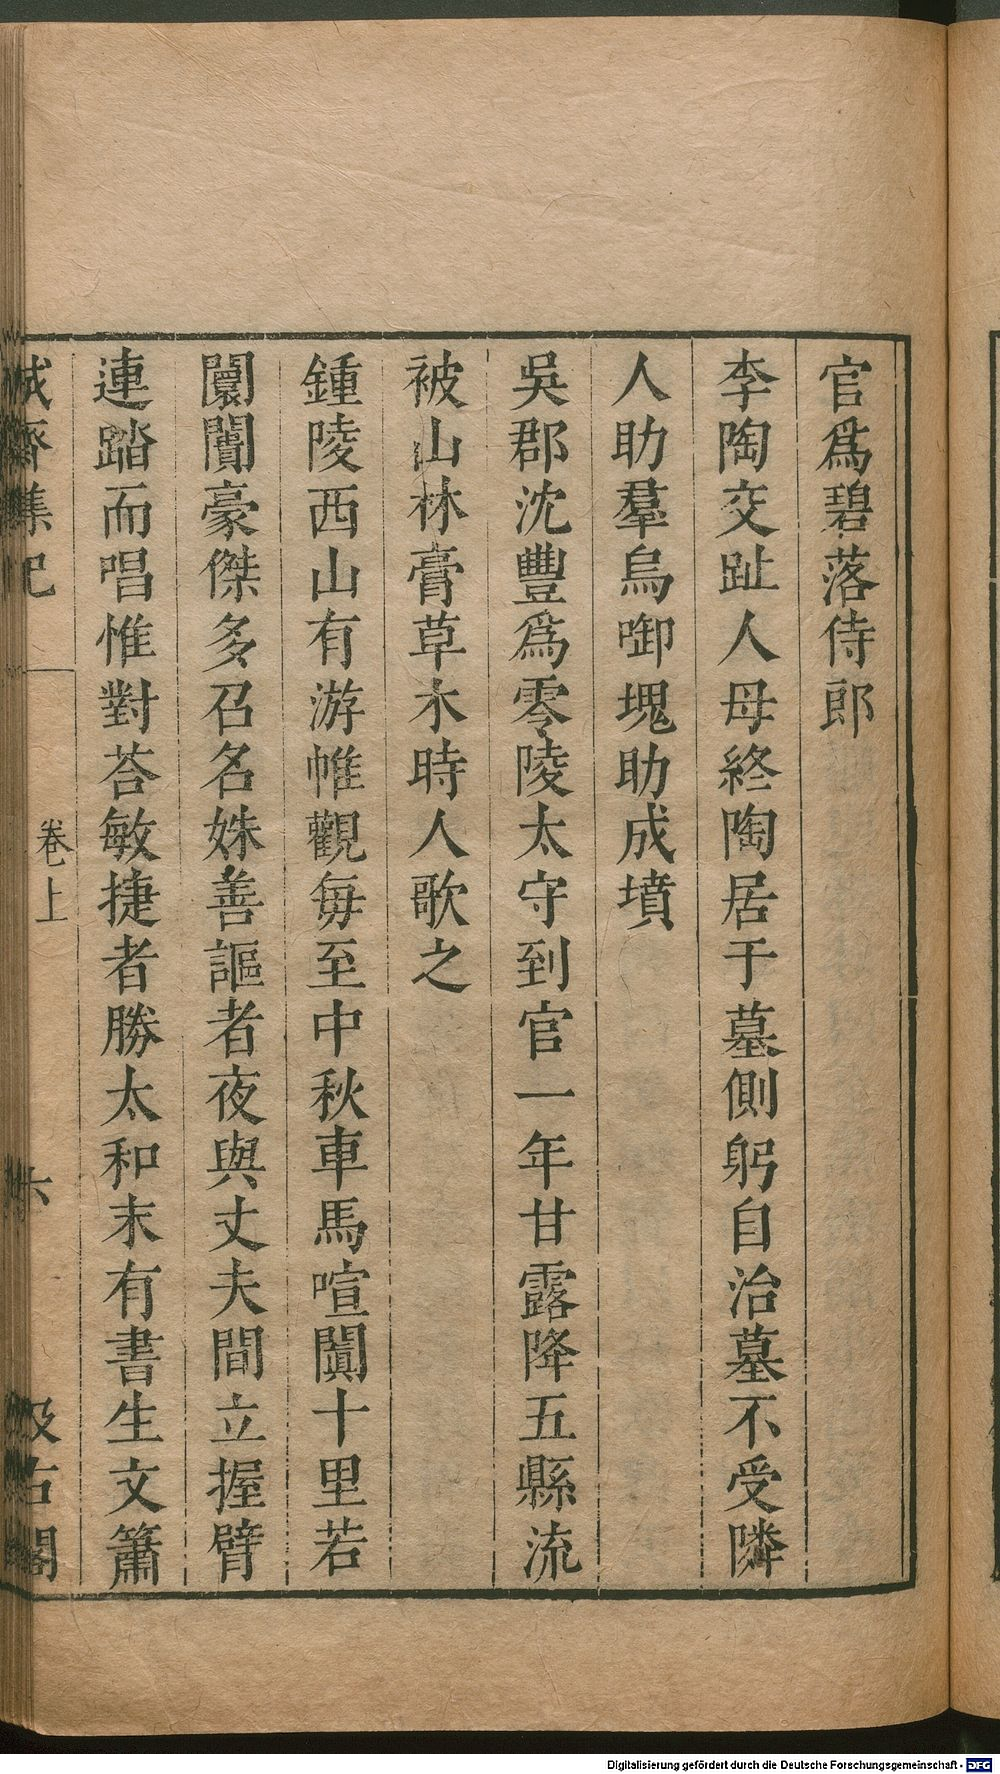 官爲碧落侍郎
李陶交趾人母終陶居于墓側躬自治墓不受隣
人助羣烏啣塊助成墳
吳郡沈豐爲零陵太守到官一年甘露降五縣流
被山林膏草木時人歌之
鍾陵西山有游帷觀每至中秋車馬喧闐十里若
闤闠豪傑多召名姝善謳者夜與丈夫間立握臂
連踏而唱惟對荅敏捷者勝太和末有書生文簫
卷上
六
Digitalisierung gefördert durch die Deutsche Forschungsgemeinschaft - DFG